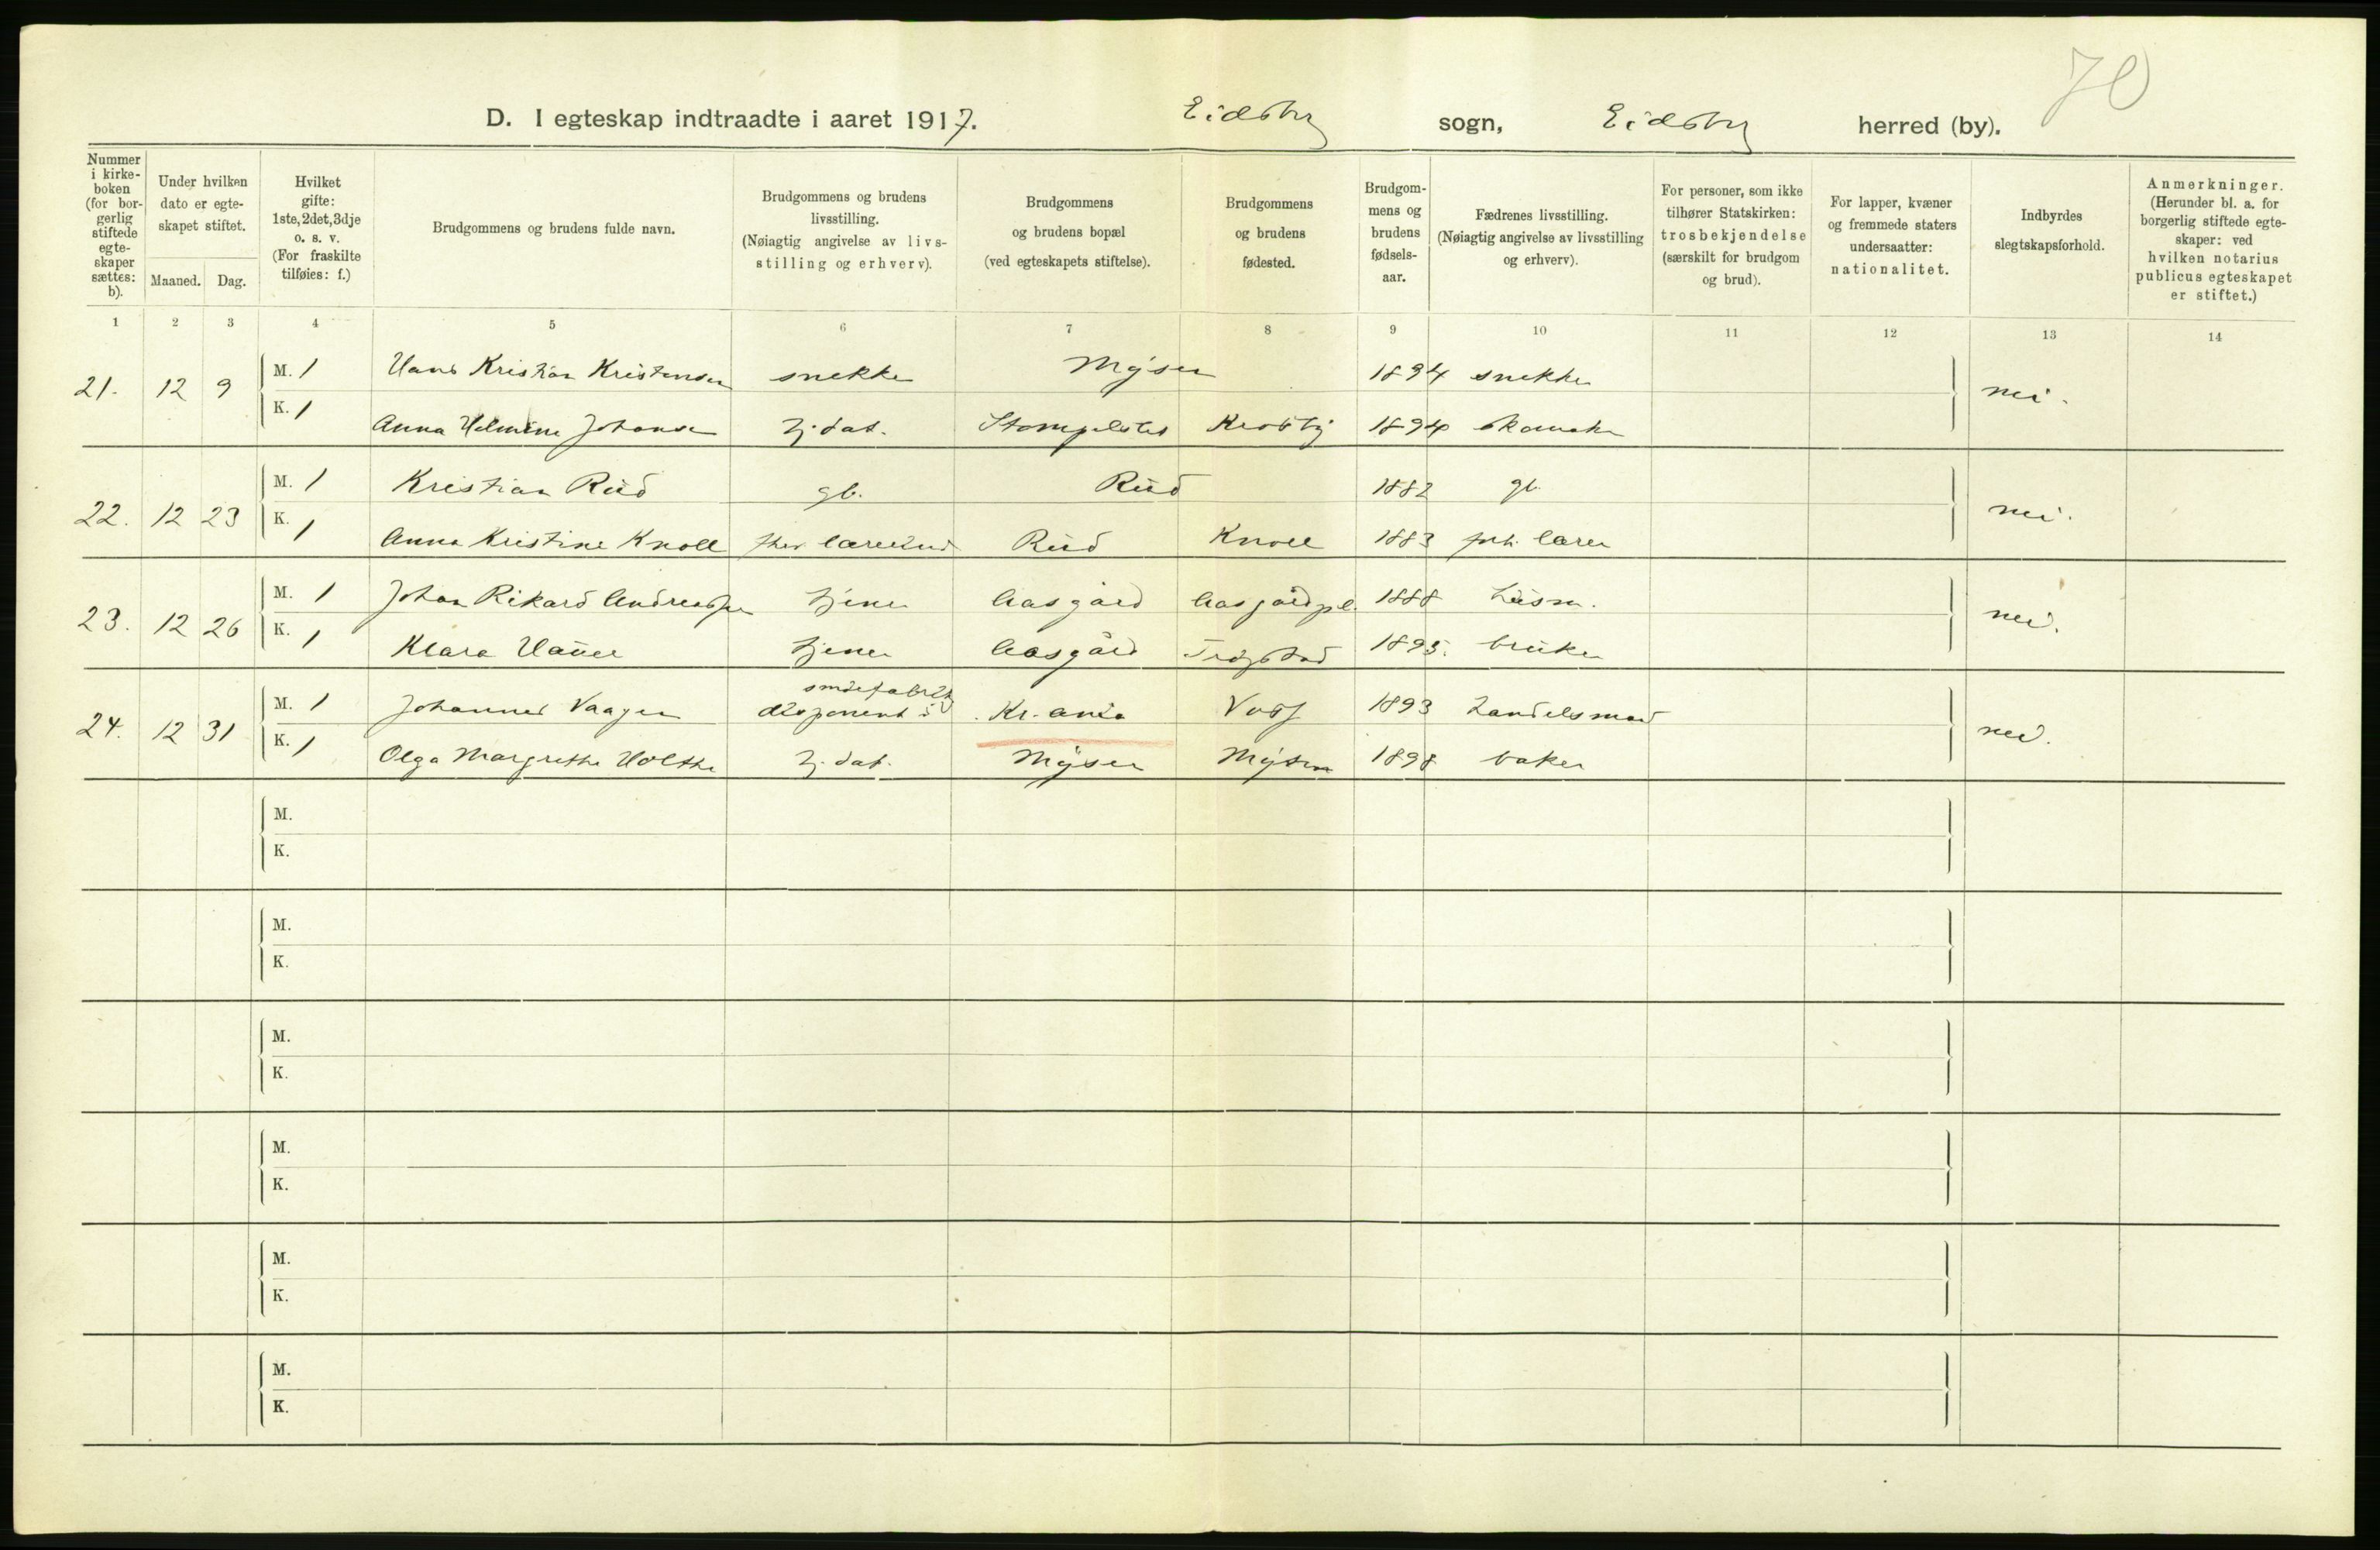 70
D. I egteskap indtraadte i aaret 1917. Eidsbg sogn, Eidsbg herred (by).
Nummer i kirke-boken (for bor-gerlig stiftede egte-skaper sættes: b).
Under hvilken dato er egte-skapet stiftet.
Maaned. Dag.
Hvilket gifte: 1ste, 2det, 3dje o. s. v. (For fraskilte tilføies: f.)
Brudgommens og brudens fulde navn.
Brudgommens og brudens livsstilling. (Nøiagtig angivelse av livs-stilling og erhverv).
Brudgommens og brudens bopæl (ved egteskapets stiftelse).
Brudgommens og brudens fødested.
Brudgom-mens og brudens fødsels-aar.
Fædrenes livsstilling. (Nøiagtig angivelse av livsstilling og erhverv).
For personer, som ikke tilhører Statskirken: trosbekjendelse (særskilt for brudgom og brud).
For lapper, kvæner og fremmede staters undersaatter: nationalitet.
Indbyrdes slegtskapsforhold.
Anmerkninger. (Herunder bl. a. for borgerlig stiftede egte-skaper: ved hvilken notarius publicus egteskapet er stiftet.)
1 2 3 4 5 6 7 8 9 10 11 12 13 14
21. 12 9 M. 1 Hans Kristian Kristensen snekker Mysen 1894 snekker nei.
K. 1 Anna Helmine Johansen Hj. dat. 1894
22. 12 23 M. 1 Kristian Rud gb. Rud 1882 gb. nei.
K. 1 Anna Kristine Knoll Rud Knoll 1883 lærer
23. 12 26 M. 1 Johan Rikard Andreassen tjener Aasgård Aasgårdpl. 1888 Husm. nei.
K. 1 Klara Hauer tjener Aasgård Trøgstad 1895. bruker
24. 12 31 M. 1 Johannes Vaagen disponent i smørfabrik Kr.ania Voss 1893 Handelsmand nei.
K. 1 Olga Margrethe Holthe Hj. dat. Mysen Mysen 1898 baker
M.
K.
M.
K.
M.
K.
M.
K.
M.
K.
M.
K.